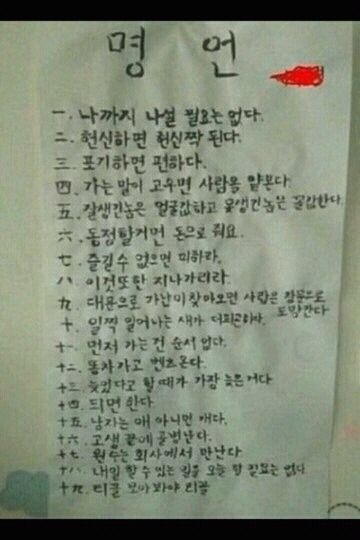 명 언
一. 나까지 나설 필요는 없다.
二. 헌신하면 헌신짝 된다.
三. 포기하면 편하다.
四. 가는 말이 고우면 사람을 얕본다.
五. 잘생긴놈은 얼굴값하고 못생긴놈은 꼴값한다.
六. 동정할거면 돈으로 줘요.
七. 즐길수 없으면 피하라,
八. 이것또한 지나가리라.
九. 대문으로 가난이 찾아오면 사랑은 창문으로
도망간다
十. 일찍 일어나는 새가 더피곤하다.
十一. 먼저 가는 건 순서 없다.
十二. 똥차가고 벤츠온다.
十三. 늦었다고 할때가 가장 늦은거다
十四. 티면 한다
十五. 남자는 애 아니면 개다.
十六. 고생 끝에 골병난다.
十七. 원수는 회사에서 만난다
十八. 내일 할 수 있는 일을 오늘 할 필요는 없다
十九. 티끌 모아봐야 티끌